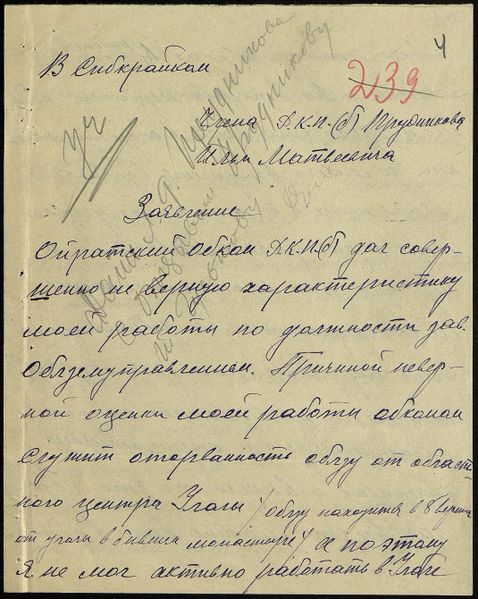 4
В Сибкрайком
239
Члена В.К.П.(б) Прудникова
Ильи Матвеевича
Заявление
Ойратский Обком В.К.П.(б) дал совер-
шенно не верную характеристику
моей работы по должности зав.
Облземуправлением. Причиной невер-
ной оценки моей работы обкомом
служит оторванность облзу от област-
ного центра Улалы /облзу находится в 8 верстах
от улалы в бывшем монастыре/ а поэтому
я не мог активно работать в Улале